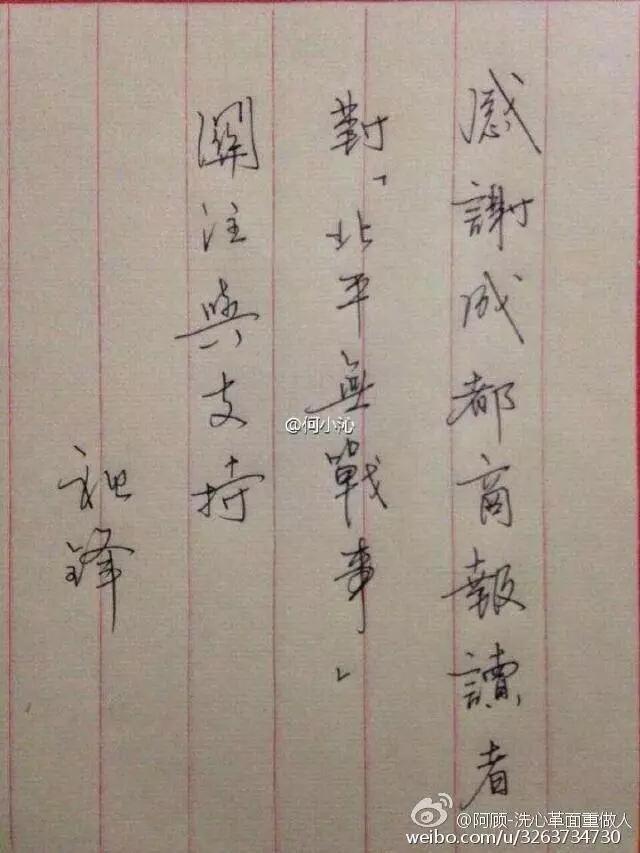 感謝成都商報讀者
對「北平無戰事」
關注與支持
祖鋒
@何小沁
@阿顾-洗心革面重做人
weibo.com/u/3263734730